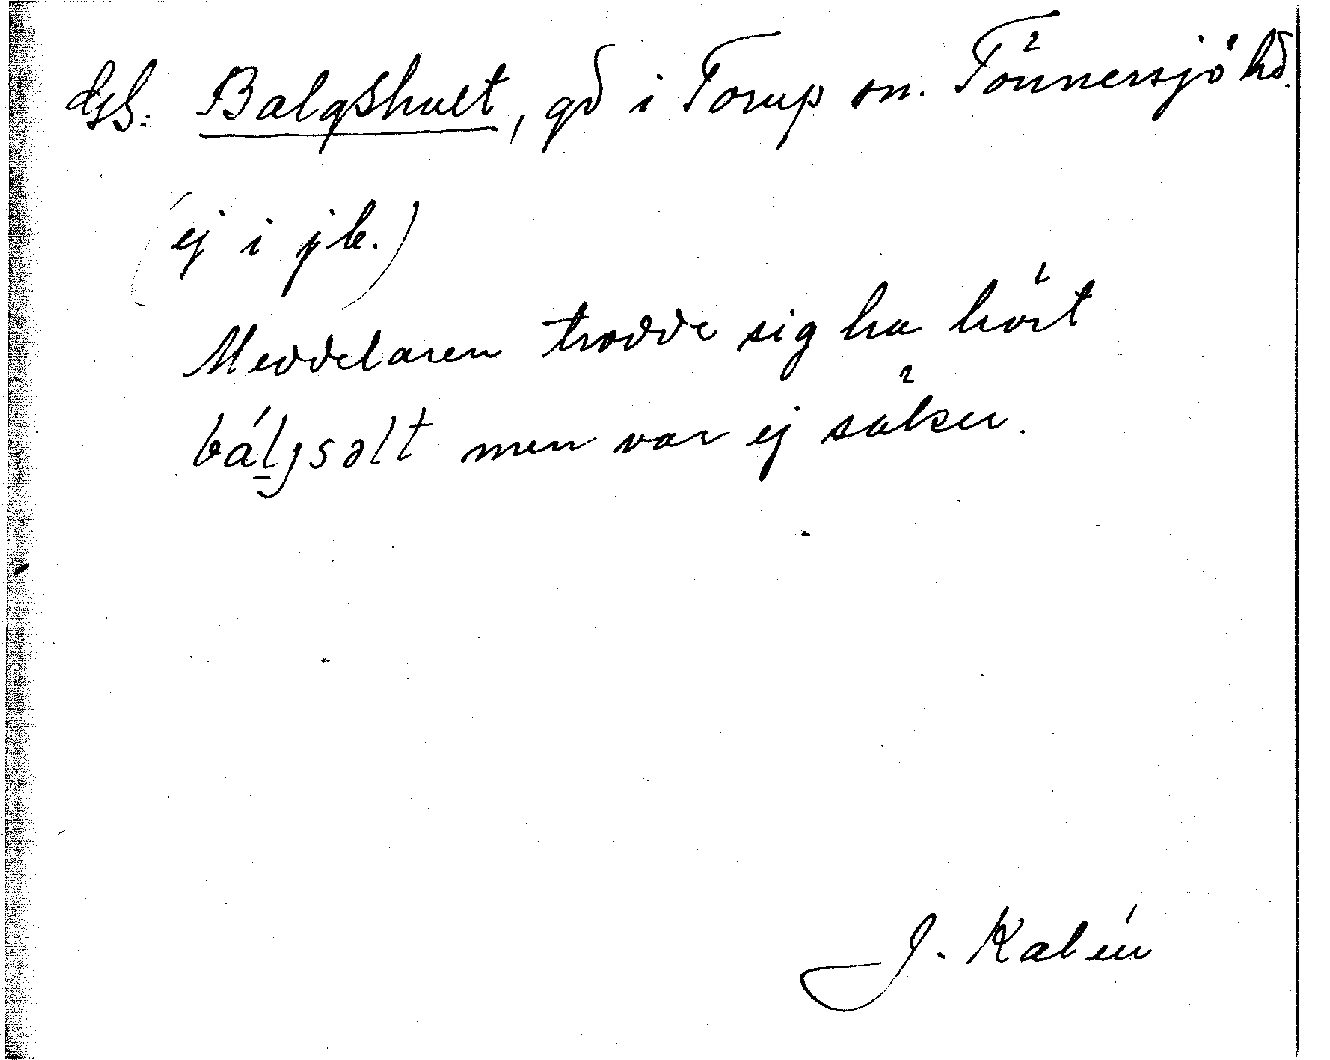 Balgshult, gd i Torup sn. Tönnersjö hd.
(ej i jb.)
Meddelaren trodde sig ha hört
bálgsəlt men var ej säker.
J. Kalén